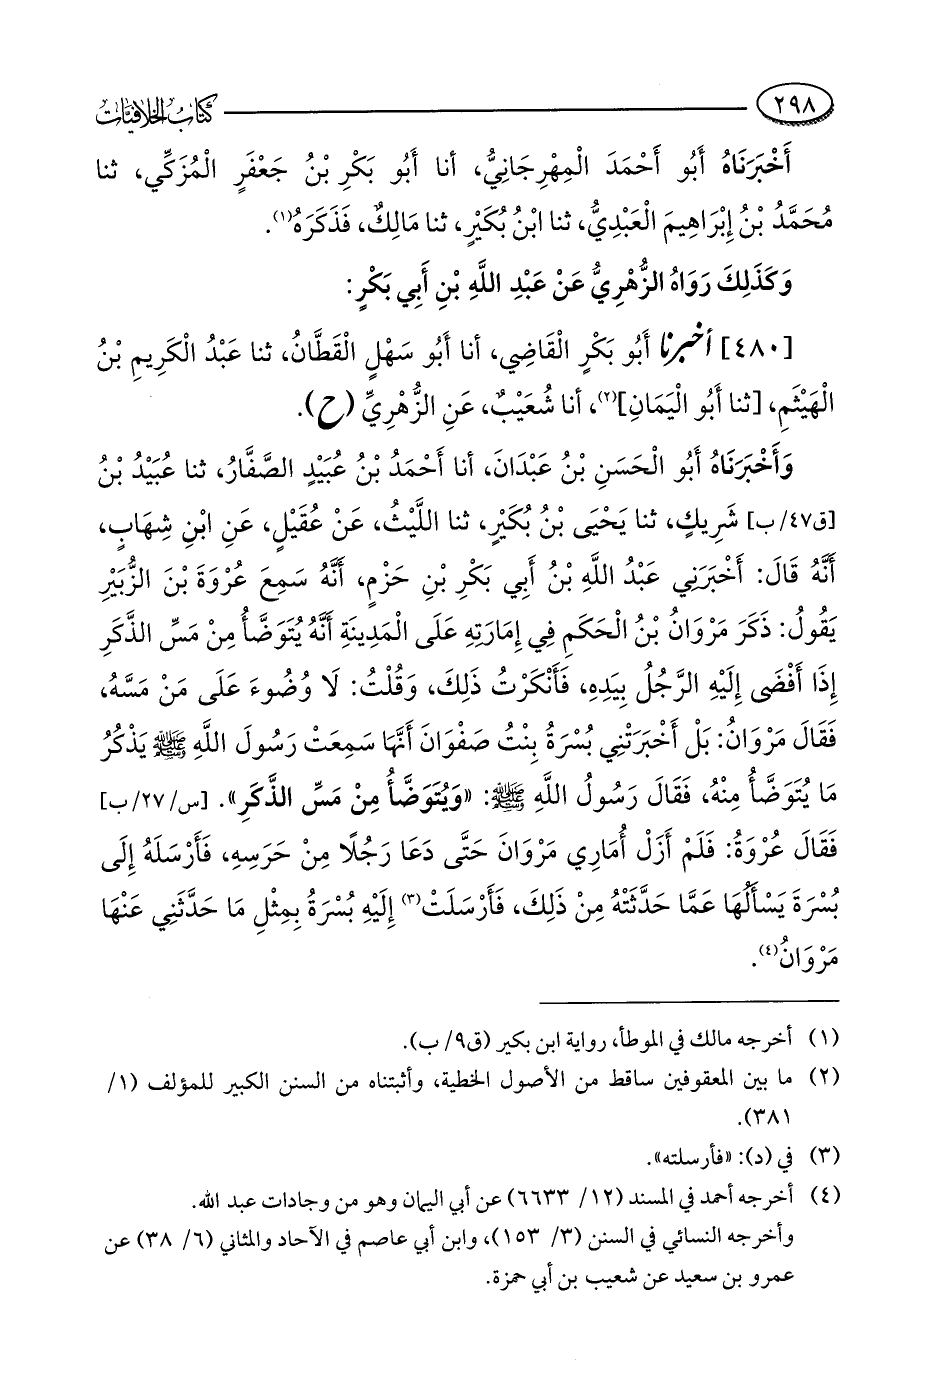 ٢٩٨ كتاب الخلافيات
أَخْبَرَنَاهُ أَبُو أَحْمَدَ الْمِهْرِجَانِيُّ، أنا أَبُو بَكْرِ بْنُ جَعْفَرٍ الْمُزَكِّي، ثنا
مُحَمَّدُ بْنُ إِبْرَاهِيمَ الْعَبْدِيُّ، ثنا ابْنُ بُكَيْرٍ، ثنا مَالِكٌ، فَذَكَرَهُ(١).
وَكَذَلِكَ رَوَاهُ الزُّهْرِيُّ عَنْ عَبْدِ اللَّهِ بْنِ أَبِي بَكْرٍ:
[٤٨٠] أخبرنا أَبُو بَكْرٍ الْقَاضِي، أنا أَبُو سَهْلٍ الْقَطَّانُ، ثنا عَبْدُ الْكَرِيمِ بْنُ
الْهَيْثَمِ، [ثنا أَبُو الْيَمَانِ](٢)، أنا شُعَيْبٌ، عَنِ الزُّهْرِيِّ (ح).
وَأَخْبَرَنَاهُ أَبُو الْحَسَنِ بْنُ عَبْدَانَ، أنا أَحْمَدُ بْنُ عُبَيْدٍ الصَّفَّارُ، ثنا عُبَيْدُ بْنُ
[ق٤٧/ب] شَرِيكٍ، ثنا يَحْيَى بْنُ بُكَيْرٍ، ثنا اللَّيْثُ، عَنْ عُقَيْلٍ، عَنِ ابْنِ شِهَابٍ،
أَنَّهُ قَالَ: أَخْبَرَنِي عَبْدُ اللَّهِ بْنُ أَبِي بَكْرِ بْنِ حَزْمٍ، أَنَّهُ سَمِعَ عُرْوَةَ بْنَ الزُّبَيْرِ
يَقُولُ: ذَكَرَ مَرْوَانُ بْنُ الْحَكَمِ فِي إِمَارَتِهِ عَلَى الْمَدِينَةِ أَنَّهُ يُتَوَضَّأُ مِنْ مَسِّ الذَّكَرِ
إِذَا أَفْضَى إِلَيْهِ الرَّجُلُ بِيَدِهِ، فَأَنْكَرْتُ ذَلِكَ، وَقُلْتُ: لَا وُضُوءَ عَلَى مَنْ مَسَّهُ،
فَقَالَ مَرْوَانُ: بَلْ أَخْبَرَتْنِي بُسْرَةُ بِنْتُ صَفْوَانَ أَنَّهَا سَمِعَتْ رَسُولَ اللَّهِ ﷺ يَذْكُرُ
مَا يُتَوَضَّأُ مِنْهُ، فَقَالَ رَسُولُ اللَّهِ ﷺ: «وَيُتَوَضَّأُ مِنْ مَسِّ الذَّكَرِ». [س/٢٧/ب]
فَقَالَ عُرْوَةُ: فَلَمْ أَزَلْ أُمَارِي مَرْوَانَ حَتَّى دَعَا رَجُلًا مِنْ حَرَسِهِ، فَأَرْسَلَهُ إِلَى
بُسْرَةَ يَسْأَلُهَا عَمَّا حَدَّثَتْهُ مِنْ ذَلِكَ، فَأَرْسَلَتْ(٣) إِلَيْهِ بُسْرَةُ بِمِثْلِ مَا حَدَّثَنِي عَنْهَا
مَرْوَانُ(٤).
(١) أخرجه مالك في الموطأ، رواية ابن بكير (ق٩/ ب).
(٢) ما بين المعقوفين ساقط من الأصول الخطية، وأثبتناه من السنن الكبير للمؤلف (١/
٣٨١).
(٣) في (د): «فأرسلته».
(٤) أخرجه أحمد في المسند (١٢/ ٦٦٣٣) عن أبي اليمان وهو من وجادات عبد الله.
وأخرجه النسائي في السنن (٣/ ١٥٣)، وابن أبي عاصم في الآحاد والمثاني (٦/ ٣٨) عن
عمرو بن سعيد عن شعيب بن أبي حمزة.